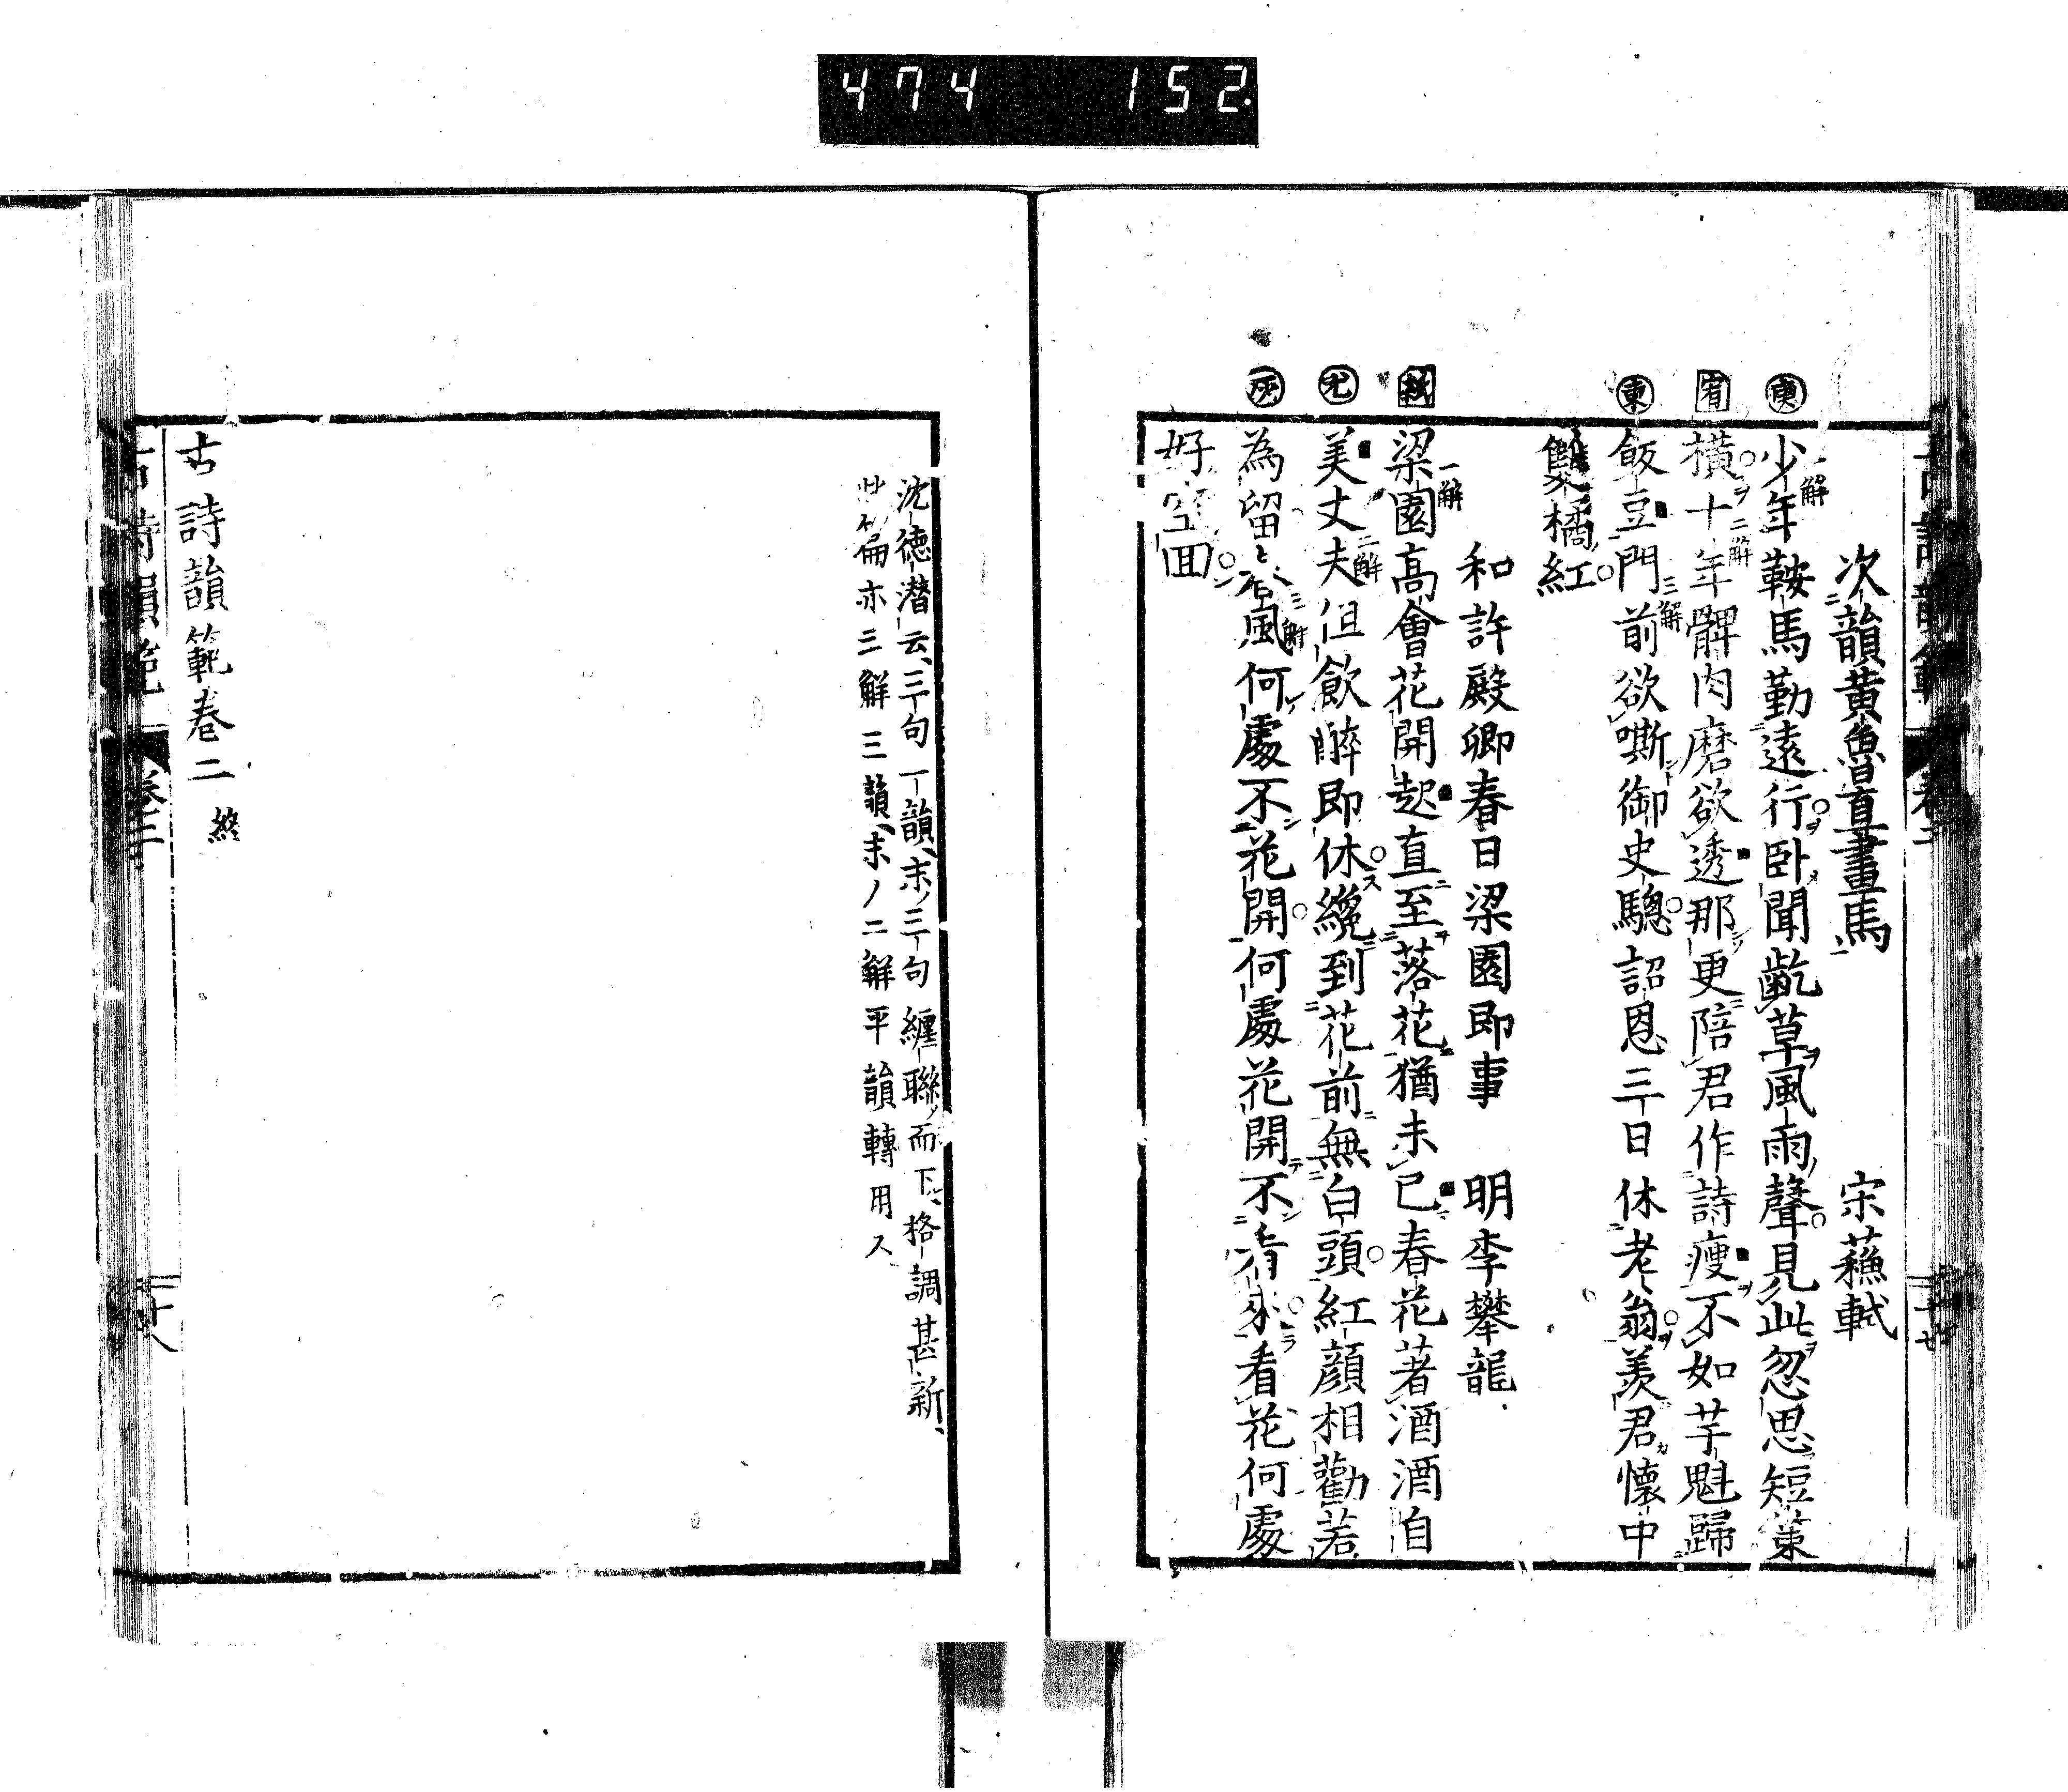 474 152
次韻黄魯直畫馬 宋蘓軾
庚
一解
少年鞍馬勤遠行臥聞齕草風雨聲見此忽思短策
宥
二解
橫十年髀肉磨欲透那更陪君作詩瘦不如芋魁歸
東
三解
飯豆門前欲嘶御史驄詔恩三日休老翁羨君懷中
雙橘紅
和許殿卿春日梁園即事 明李攀龍
紙
一解
梁園高會花開起直至落花猶未已春花著酒酒自
尤
二解
美丈夫但飲醉即休纔到花前無白頭紅顔相勸若
灰
三解
為留春風何處不花開何處花開不看來看花何處
好空回
沈德潜云、三句一韻、末ノ三句纏聯ノ而下、格調甚新、
此篇亦三解三韻、末ノ二解平韻轉用ス
古詩韻範卷二 終
古詩韻範 卷二 二十八